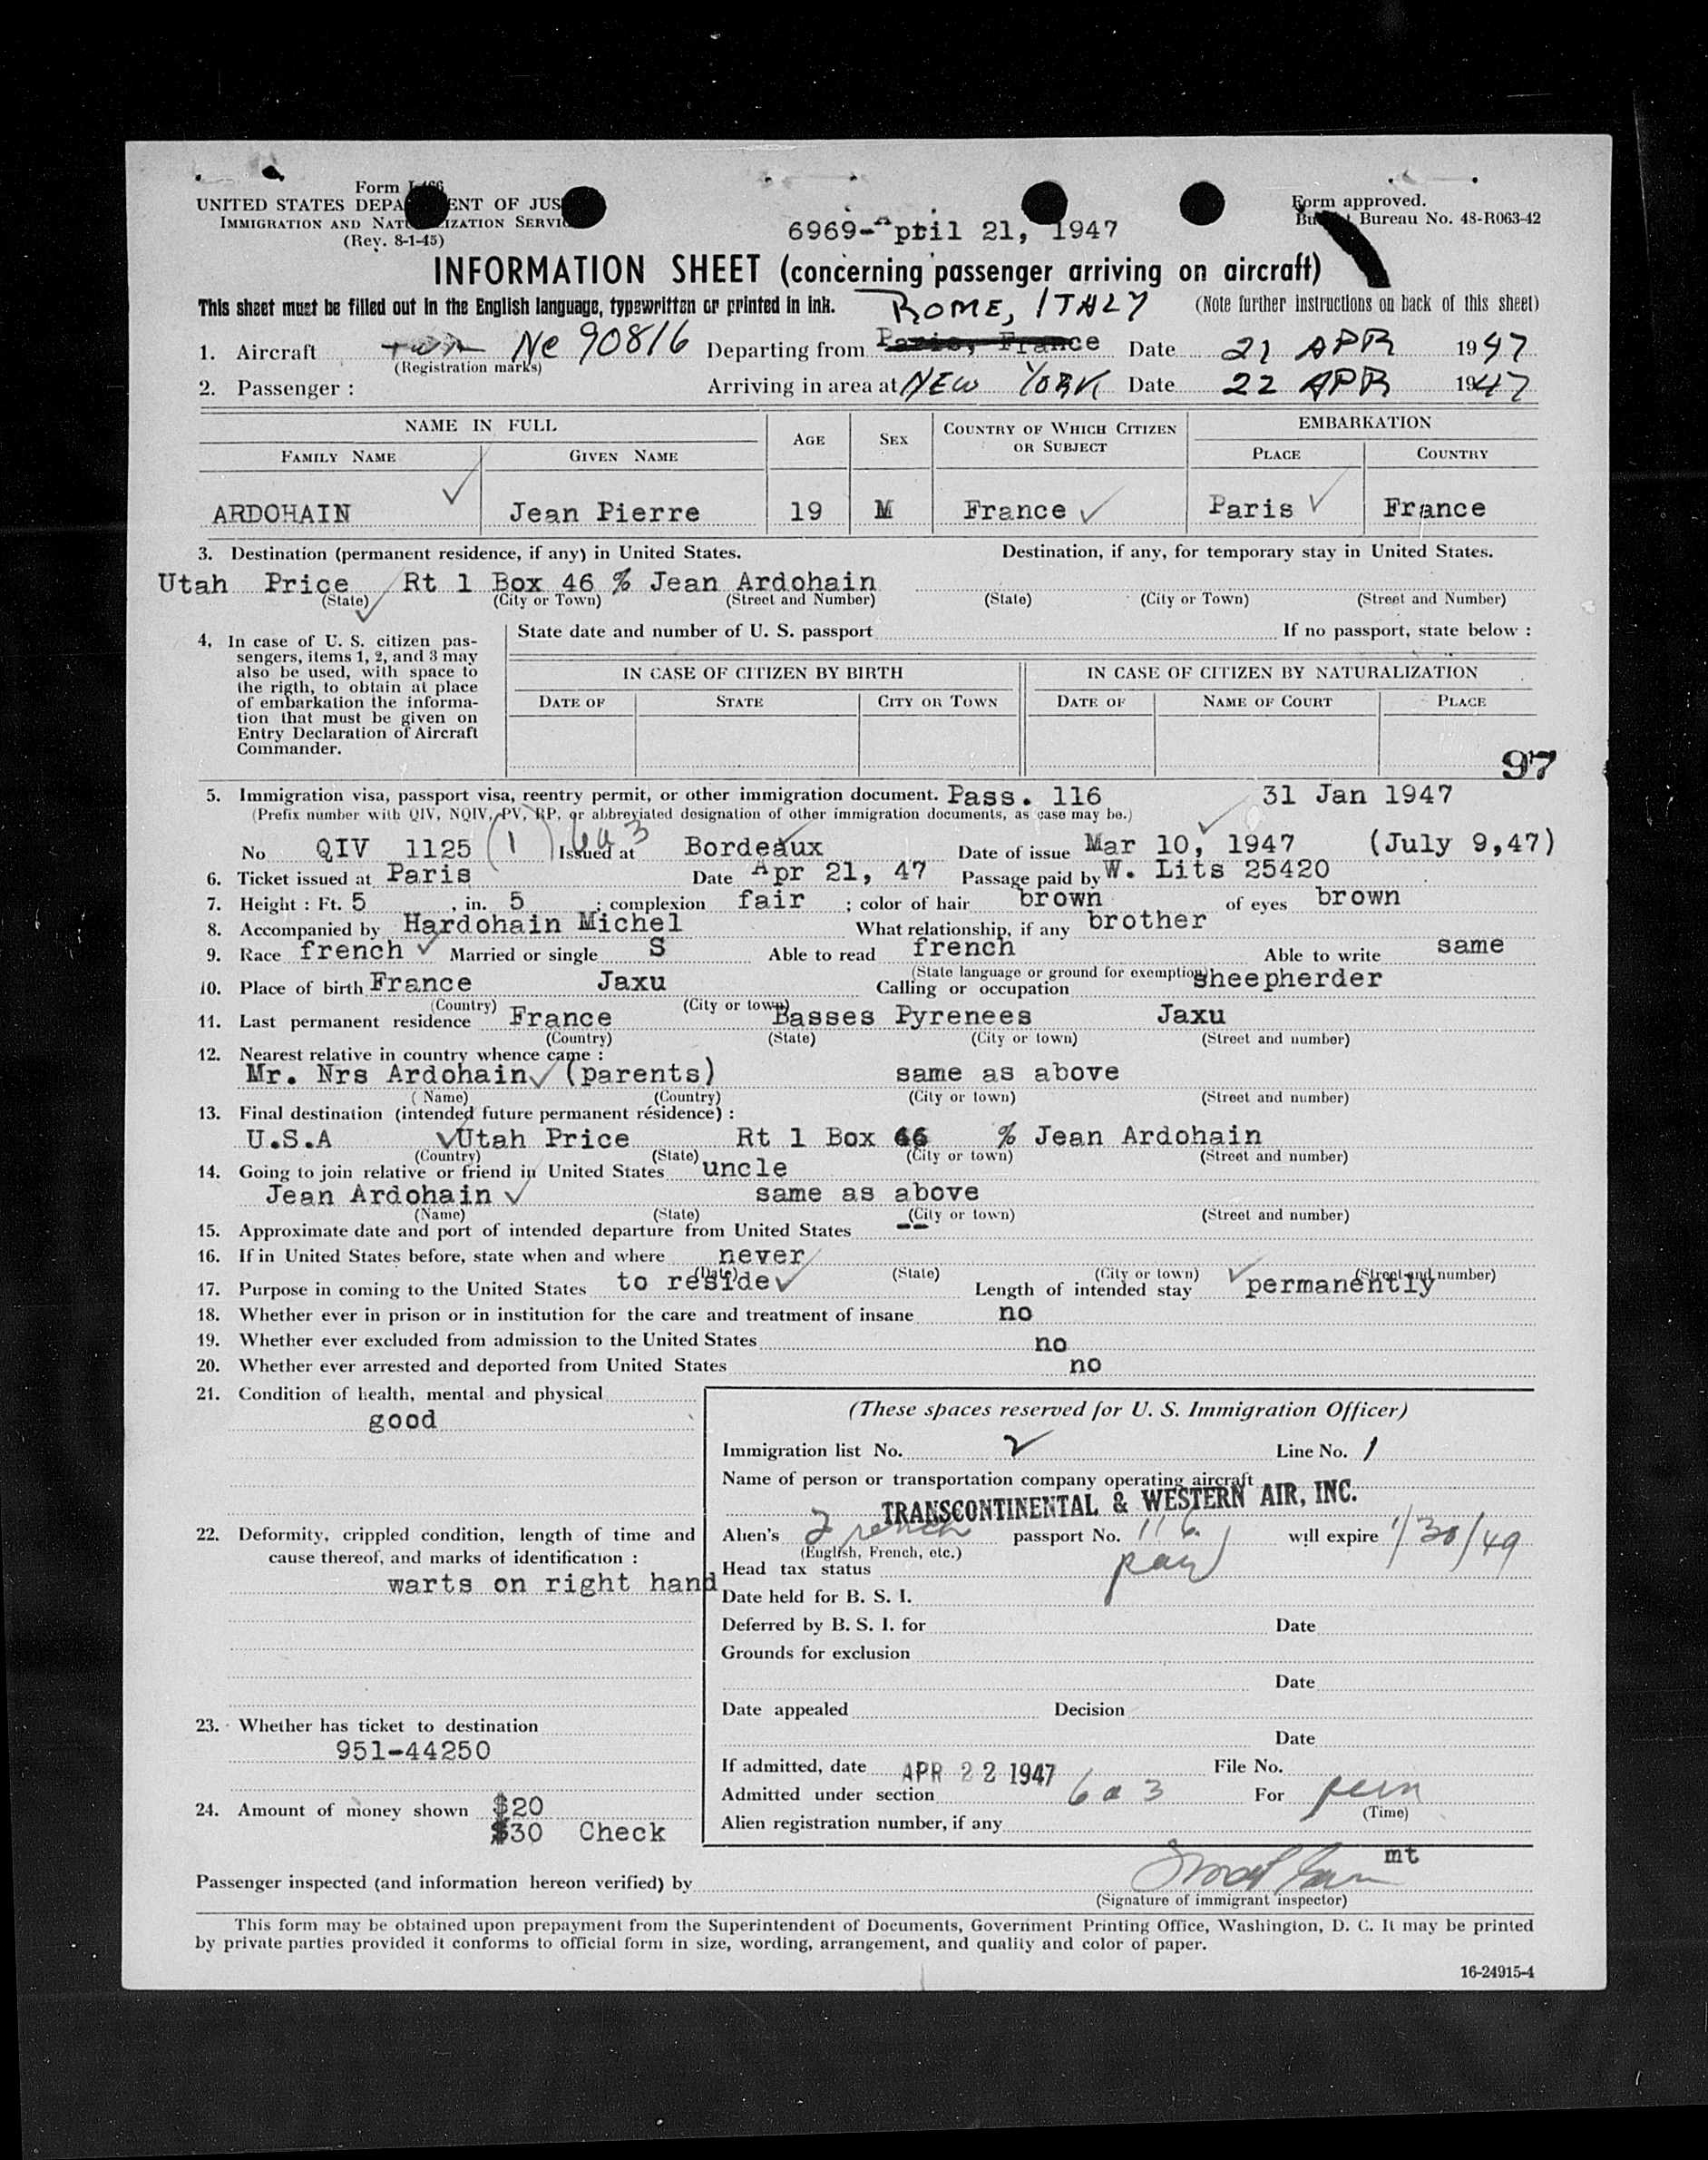 Form I-466
UNITED STATES DEPA ENT OF JUS
IMMIGRATION AND NATU IZATION SERVIC
(Rev. 8-1-45)
6969-April 21, 1947
Form approved.
Bureau No. 48-R063-42
INFORMATION SHEET (concerning passenger arriving on aircraft)
This sheet must be filled out in the English language, typewritten or printed in ink. ROME, ITALY (Note further instructions on back of this sheet)
1. Aircraft TWA Nc 90816 Departing from Paris, France Date 21 APR 1947
(Registration marks)
2. Passenger : Arriving in area at NEW YORK Date 22 APR 1947
NAME IN FULL AGE SEX COUNTRY OF WHICH CITIZEN OR SUBJECT EMBARKATION
FAMILY NAME GIVEN NAME PLACE COUNTRY
ARDOHAIN Jean Pierre 19 M France Paris France
3. Destination (permanent residence, if any) in United States. Destination, if any, for temporary stay in United States.
Utah Price Rt 1 Box 46 % Jean Ardohain
(State) (City or Town) (Street and Number) (State) (City or Town) (Street and Number)
4. In case of U. S. citizen pas-
sengers, items 1, 2, and 3 may
also be used, with space to
the rigth, to obtain at place
of embarkation the informa-
tion that must be given on
Entry Declaration of Aircraft
Commander.
State date and number of U. S. passport If no passport, state below :
IN CASE OF CITIZEN BY BIRTH IN CASE OF CITIZEN BY NATURALIZATION
DATE OF STATE CITY OR TOWN DATE OF NAME OF COURT PLACE
97
5. Immigration visa, passport visa, reentry permit, or other immigration document. Pass. 116 31 Jan 1947
(Prefix number with QIV, NQIV, PV, RP, or abbreviated designation of other immigration documents, as case may be.)
No QIV 1125 (1) 6a3 Issued at Bordeaux Date of issue Mar 10, 1947 (July 9,47)
6. Ticket issued at Paris Date Apr 21, 47 Passage paid by W. Lits 25420
7. Height : Ft. 5 , in. 5 ; complexion fair ; color of hair brown of eyes brown
8. Accompanied by Hardohain Michel What relationship, if any brother
9. Race french Married or single S Able to read french Able to write same
(State language or ground for exemption)
10. Place of birth France Jaxu Calling or occupation sheepherder
(Country) (City or town)
11. Last permanent residence France Basses Pyrenees Jaxu
(Country) (State) (City or town) (Street and number)
12. Nearest relative in country whence came :
Mr. Nrs Ardohain (parents) same as above
(Name) (Country) (City or town) (Street and number)
13. Final destination (intended future permanent résidence) :
U.S.A Utah Price Rt 1 Box 46 % Jean Ardohain
(Country) (State) (City or town) (Street and number)
14. Going to join relative or friend in United States uncle
Jean Ardohain same as above
(Name) (State) (City or town) (Street and number)
15. Approximate date and port of intended departure from United States --
16. If in United States before, state when and where never
(Date) (State) (City or town) (Street and number)
17. Purpose in coming to the United States to reside Length of intended stay permanently
18. Whether ever in prison or in institution for the care and treatment of insane no
19. Whether ever excluded from admission to the United States no
20. Whether ever arrested and deported from United States no
21. Condition of health, mental and physical
good
22. Deformity, crippled condition, length of time and
cause thereof, and marks of identification :
warts on right hand
23. Whether has ticket to destination
951-44250
24. Amount of money shown $20
$30 Check
(These spaces reserved for U. S. Immigration Officer)
Immigration list No. 2 Line No. 1
Name of person or transportation company operating aircraft
TRANSCONTINENTAL & WESTERN AIR, INC.
Alien's French passport No. 116 will expire 1/30/49
(English, French, etc.)
Head tax status paid
Date held for B. S. I.
Deferred by B. S. I. for Date
Grounds for exclusion
Date
Date appealed Decision
Date
If admitted, date APR 22 1947 File No.
Admitted under section 6 a 3 For perm
(Time)
Alien registration number, if any
mt
Passenger inspected (and information hereon verified) by
(Signature of immigrant inspector)
This form may be obtained upon prepayment from the Superintendent of Documents, Government Printing Office, Washington, D. C. It may be printed
by private parties provided it conforms to official form in size, wording, arrangement, and quality and color of paper.
16-24915-4